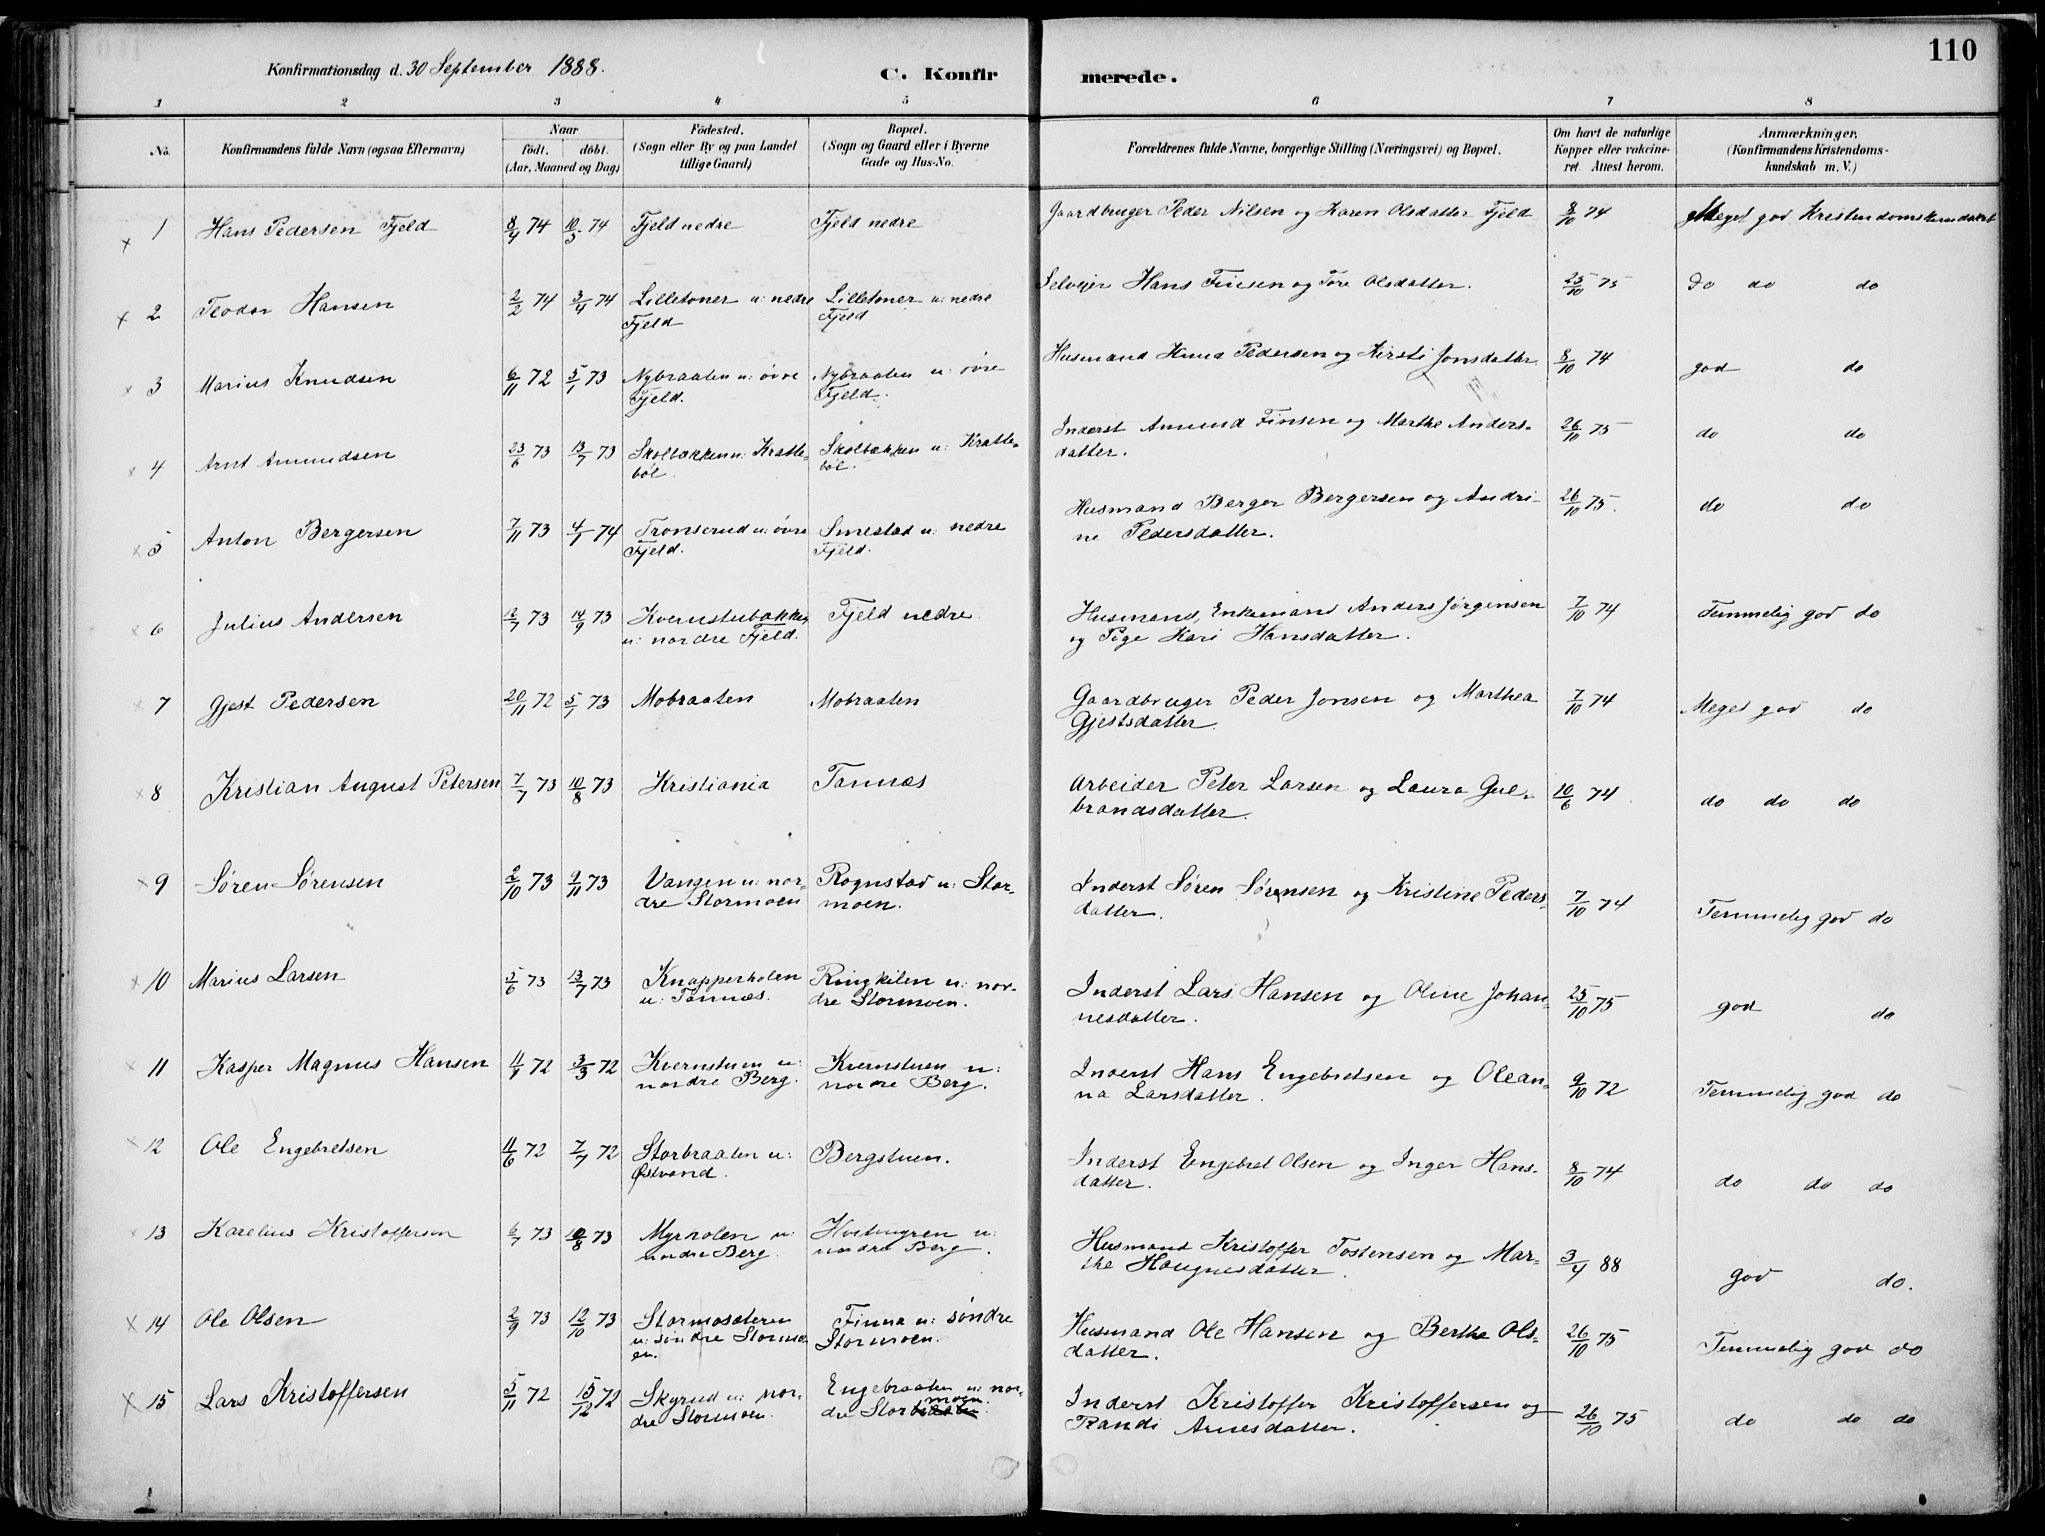 110
Konfirmationsdag d. 30 September 1888.
C. Konfir merede.
1 2 3 4 5 6 7 8
No. Konfirmandens fulde Navn (ogsaa Efternavn) Naar födt. döbt. (Aar, Maaned og Dag) Födested. (Sogn eller By og paa Landet tillige Gaard) Bopæl. (Sogn og Gaard eller i Byerne Gade og Hus-No. Forældrenes fulde Navne, borgerlige Stilling (Næringsvei) og Bopæl. Om havt de naturlige Kopper eller vakcineret. Attest herom. Anmærkninger. (Konfirmandens Kristendomskundskab m. V.)
x 1 Hans Pedersen Fjeld 8/4 74 10/5 74 Fjeld nedre Fjeld nedre Gaardbruger Peder Nilsen og Karen Olsdatter Fjeld 8/10 74 Meget god Kristendomskundskab
x 2 Teodor Hansen 2/2 74 3/4 74 Lilletoner u: nedre Lilletoner u: nedre Selveier Hans Finsen og Tore Olsdatter. 25/10 75 do do do
Fjeld Fjeld
x 3 Marius Knudsen 6/11 72 5/1 73 Nybraaten u: övre Nybraaten u: övre Husmand Knud Pedersen og Kirsti Jonsdatter 8/10 74 god do
Fjeld. Fjeld.
x 4 Arnt Amundsen 23/6 73 13/7 73 Skolbakken u: Kratte- Skolbakken u: Kratte- Inderst Amund Finsen og Marthe Anders- 26/10 75 do do
böl. böl. datter.
x 5 Anton Bergersen 7/11 73 4/1 74 Tronserud u: övre Smestad u: nedre Husmand Berger Bergersen og Andri- 26/10 75. do do
Fjeld. Fjeld. ne Pedersdatter.
x 6 Julius Andersen 12/7 73 14/9 73 Kvernstubakken Fjeld nedre Husmand, Enkemand Anders Jørgensen 7/10 74 Temmelig god do
u: nordre Fjeld. og Pige Kari Hansdatter.
x 7 Gjest Pedersen 20/11 72 5/1 73 Mobraaten Mobraaten Gaardbruger Peder Jonsen og Marthea 7/10 74 Meget god do
Gjestsdatter
x 8 Kristian August Petersen 7/7 73 10/8 73 Kristiania Tannæs Arbeider Peter Larsen og Laura Gul- 10/6 74 do do do
brandsdatter.
x 9 Søren Sørensen 2/10 73 9/11 73 Vangen u: nor- Rognstad u: Stor- Inderst Søren Sørensen og Kristine Peders- 7/10 74 Temmelig god do
dre Stormoen moen. datter.
x 10 Marius Larsen 5/6 73 13/7 73 Knapperholen Ringkilen u: nor- Inderst Lars Hansen og Oline Johan- 25/10 75 god do
u: Tannæs. dre Stormoen. nesdatter.
x 11 Kasper Magnus Hansen 11/1 72 3/3 72 Kvernstuen u: Kvernstuen u: Inderst Hans Engebretsen og Olean- 9/10 72 Temmelig god do
nordre Berg. nordre Berg. na Larsdatter.
x 12 Ole Engebretsen 11/6 72 7/7 72 Storbraaten u: Bergstuen. Inderst Engebret Olsen og Inger Hans- 8/10 74 do do do
Østvand. datter.
x 13 Karelius Kristoffersen 6/7 73 10/8 73 Myrholen u: Hvitmyren u: Husmand Kristoffer Tostensen og Mar- 3/4 88 god do.
nordre Berg. nordre Berg. the Haugnesdatter.
x 14 Ole Olsen 2/9 73 12/10 73 Stormosæteren Finna u: söndre Husmand Ole Hansen og Berthe Ols- 26/10 75 Temmelig god do
u: søndre Stormo- Stormoen. datter.
en.
x 15 Lars Kristoffersen 5/11 72 15/12 72 Skyrud u: nor- Engebraaten u: nor- Inderst Kristoffer Kristoffersen og 26/10 75 do do do
dre Stormoen. dre Stormoen. Randi Arnesdatter.